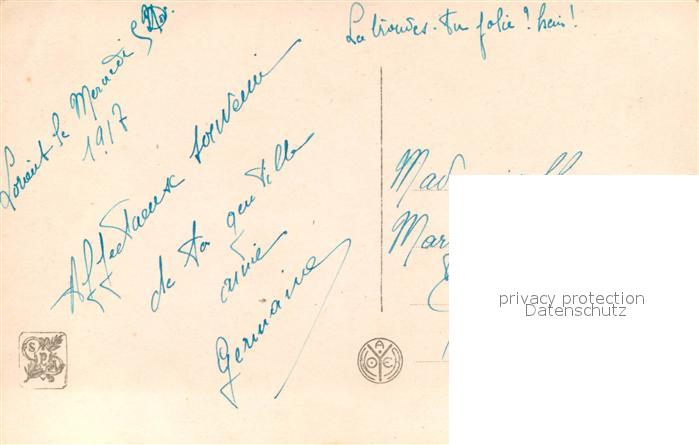 La trouves-tu folie ? hein !
Lorient le Mercredi
1917
Affectueux souvenir
de ta gentille
amie
Germaine
Mad
Mar
privacy protection
Datenschutz